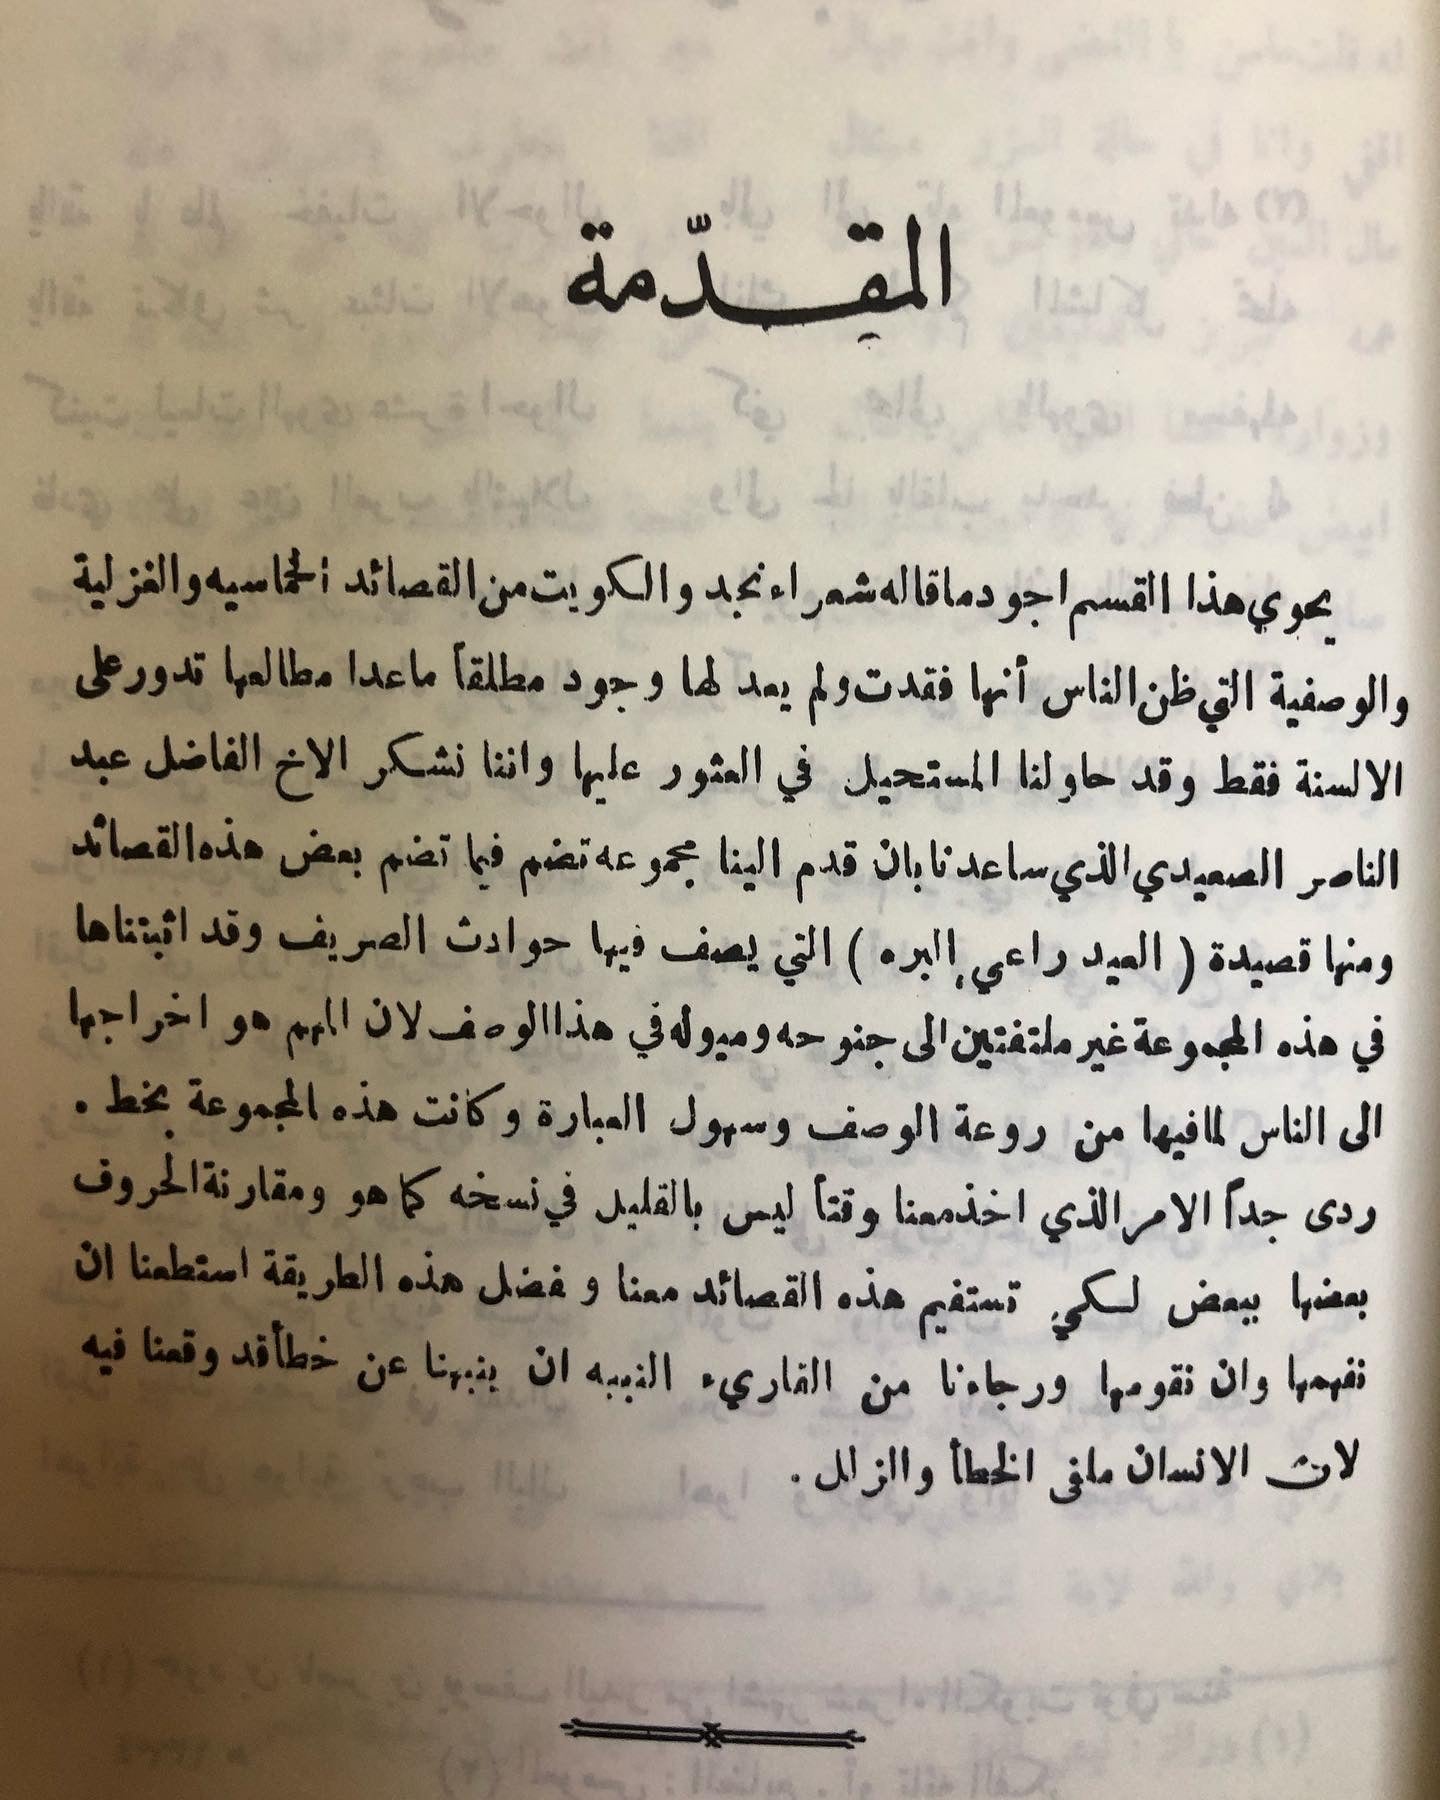 المقدّمة
يحوي هذا القسم اجود ما قاله شعراء نجد والكويت من القصائد الحماسيه والغزلية
والوصفية التي ظن الناس أنها فقدت ولم يعد لها وجود مطلقاً ماعدا مطالعها تدور على
الالسنة فقط وقد حاولنا المستحيل في العثور عليها واننا نشكر الاخ الفاضل عبد
الناصر الصعيدي الذي ساعدنا بان قدم الينا مجموعه تضم فيما تضم بعض هذه القصائد
ومنها قصيدة ( العيد راعي البره ) التي يصف فيها حوادث الصريف وقد اثبتناها
في هذه المجموعة غير ملتفتين الى جنوحه وميوله في هذا الوصف لان المهم هو اخراجها
الى الناس لمافيها من روعة الوصف وسهول العبارة وكانت هذه المجموعة بخط .
ردى جداً الامر الذي اخذ معنا وقتاً ليس بالقليل في نسخه كما هو ومقارنة الحروف
بعضها ببعض لكي تستقيم هذه القصائد معنا و فضل هذه الطريقة استطعنا ان
نفهمها وان نقومها ورجاءنا من القاريء النبيه ان ينبهنا عن خطأ قد وقعنا فيه
لان الانسان ملفى الخطأ والزلل .